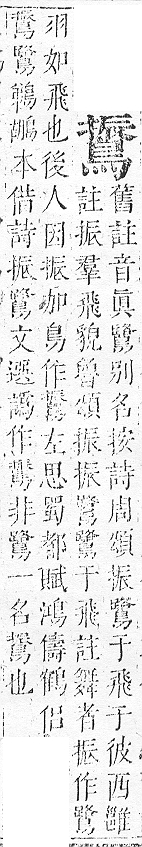 舊註音眞鷺別名按詩周頌振鷺于飛于彼西雝
註振羣飛貌魯頌振振鷺鷺于飛註舞者振作鷺
羽如飛也後人因振加鳥作左思蜀都賦鴻儔鶴侶
鷺鵜鶘本借詩振鷺文選譌作非鷺一名也